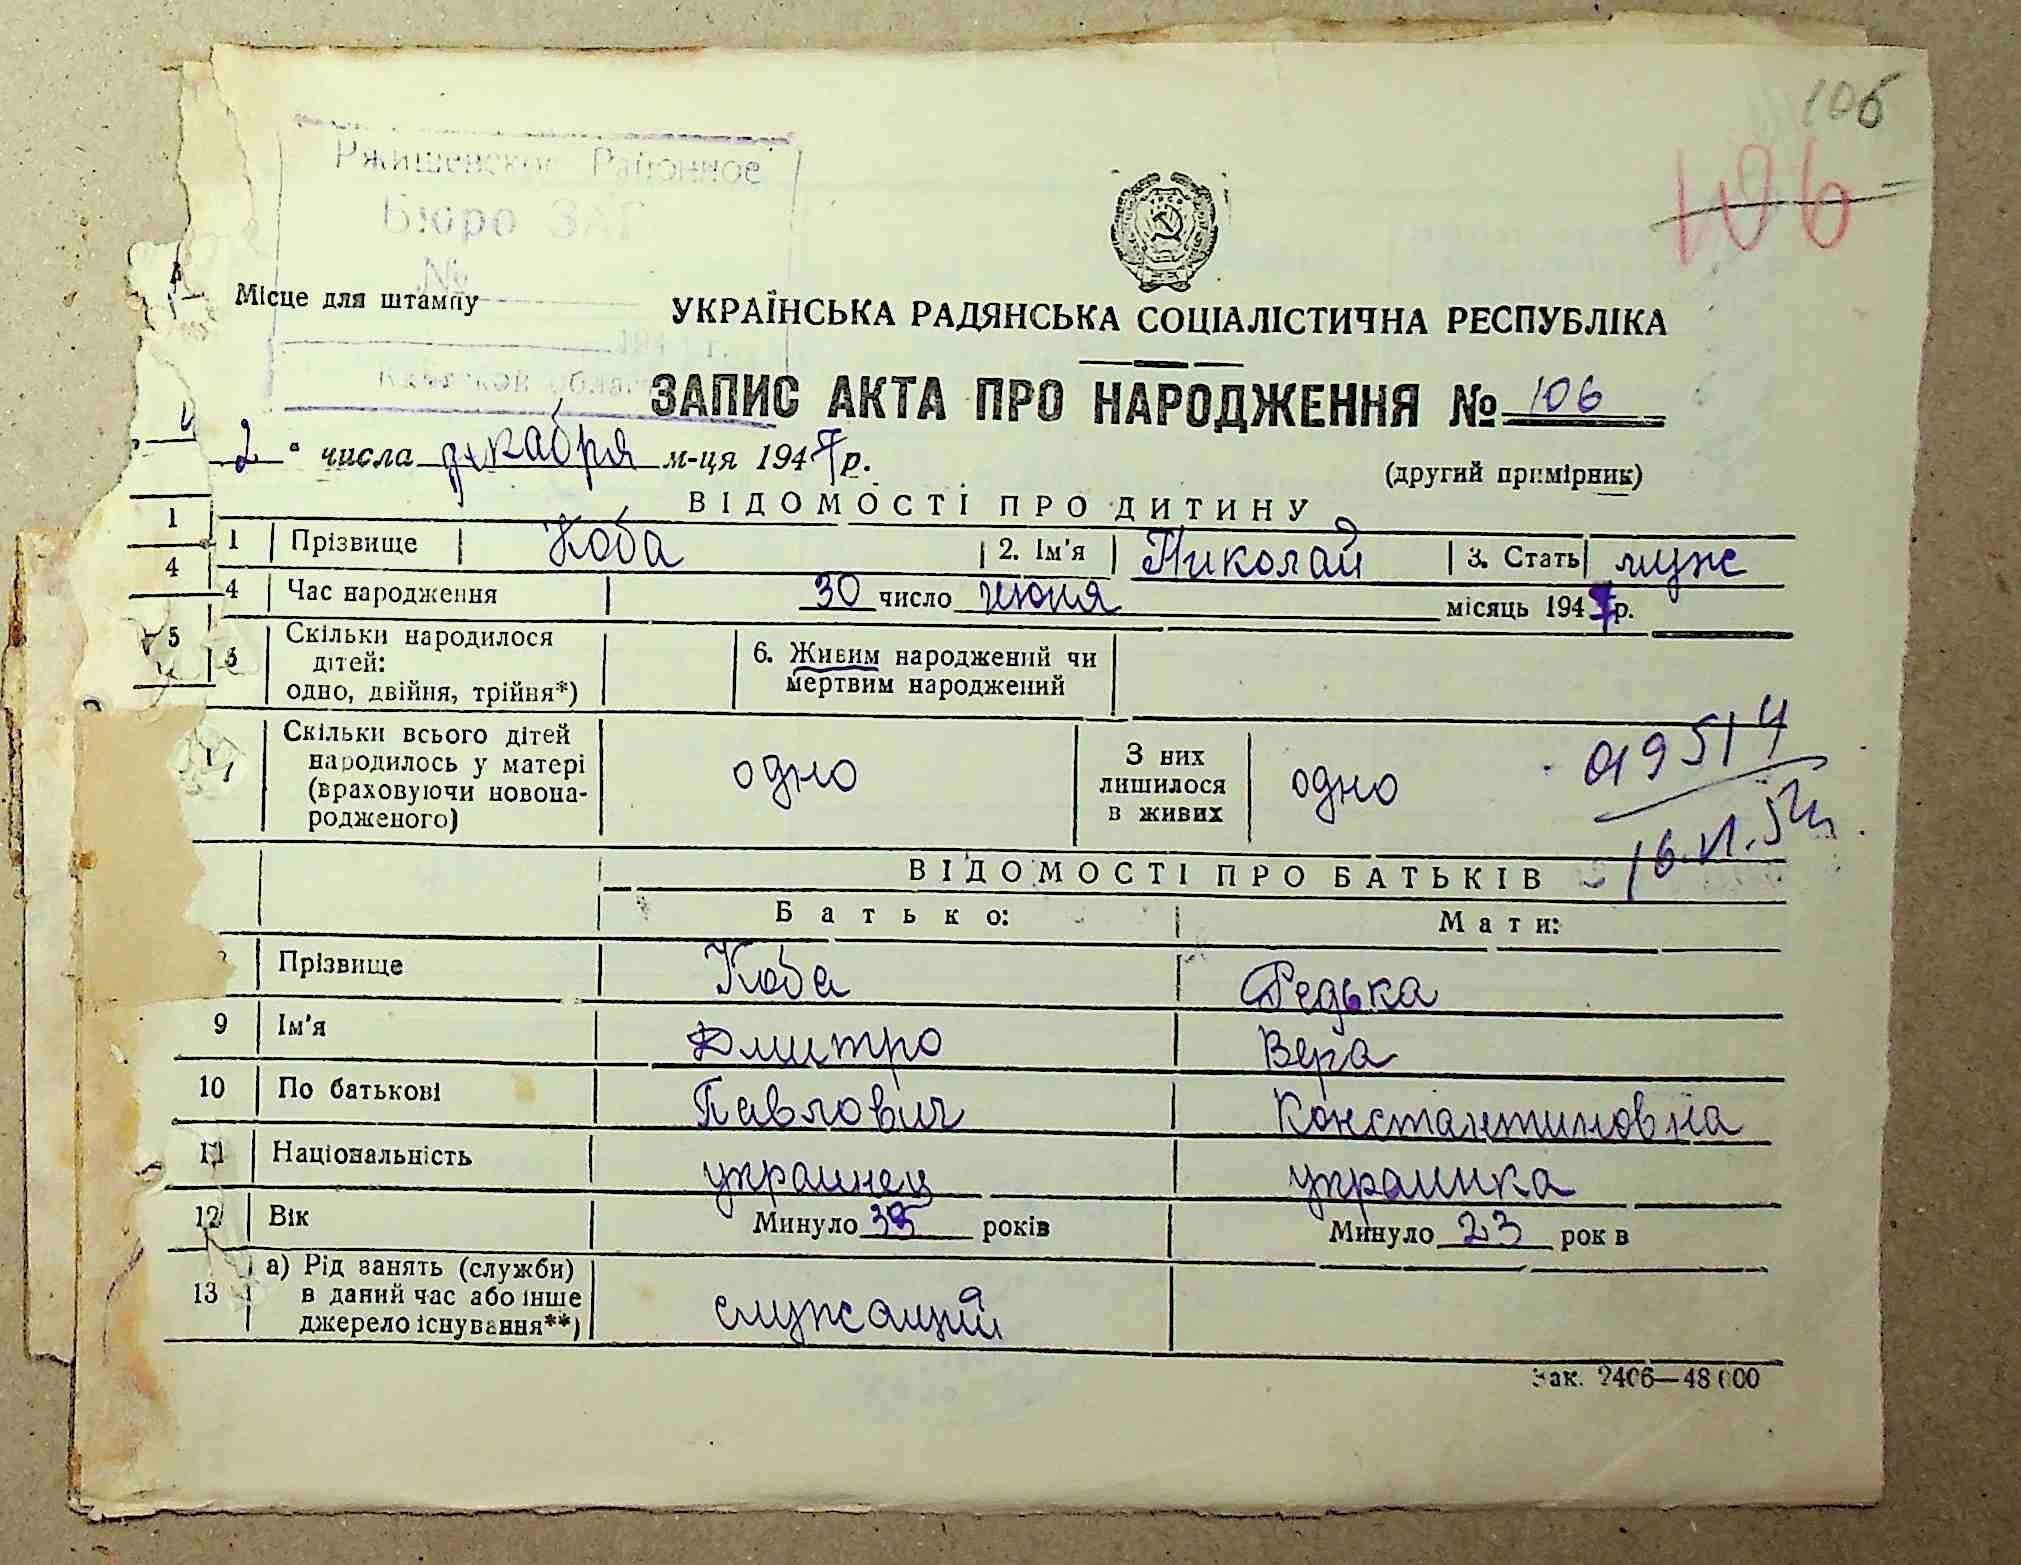 106
106
Ржищевское Районное
Бюро ЗАГ
№
Місце для штампу
УКРАЇНСЬКА РАДЯНСЬКА СОЦІАЛІСТИЧНА РЕСПУБЛІКА
ЗАПИС АКТА ПРО НАРОДЖЕННЯ № 106
2 " числа декабря м-ця 1947 р.
(другий примірник)
ВІДОМОСТІ ПРО ДИТИНУ
1
1 Прізвище Коба 2. Ім'я Николай 3. Стать муж
4
4 Час народження 30 число июня місяць 1947 р.
5
Скільки народилося дітей: одно, двійня, трійня*)
6. Живим народжений чи мертвим народжений
Скільки всього дітей народилось у матері (враховуючи новонародженого) одно З них лишилося в живих одно
019514
16.VI.
ВІДОМОСТІ ПРО БАТЬКІВ
Батько: Мати:
Прізвище Коба Редька
9 Ім'я Дмитро Вера
10 По батькові Павлович Константиновна
11 Національність украинец украинка
12 Вік Минуло років Минуло 23 рок в
13 а) Рід занять (служби) в даний час або інше джерело існування**) служащий
Зак. 2406—48 000